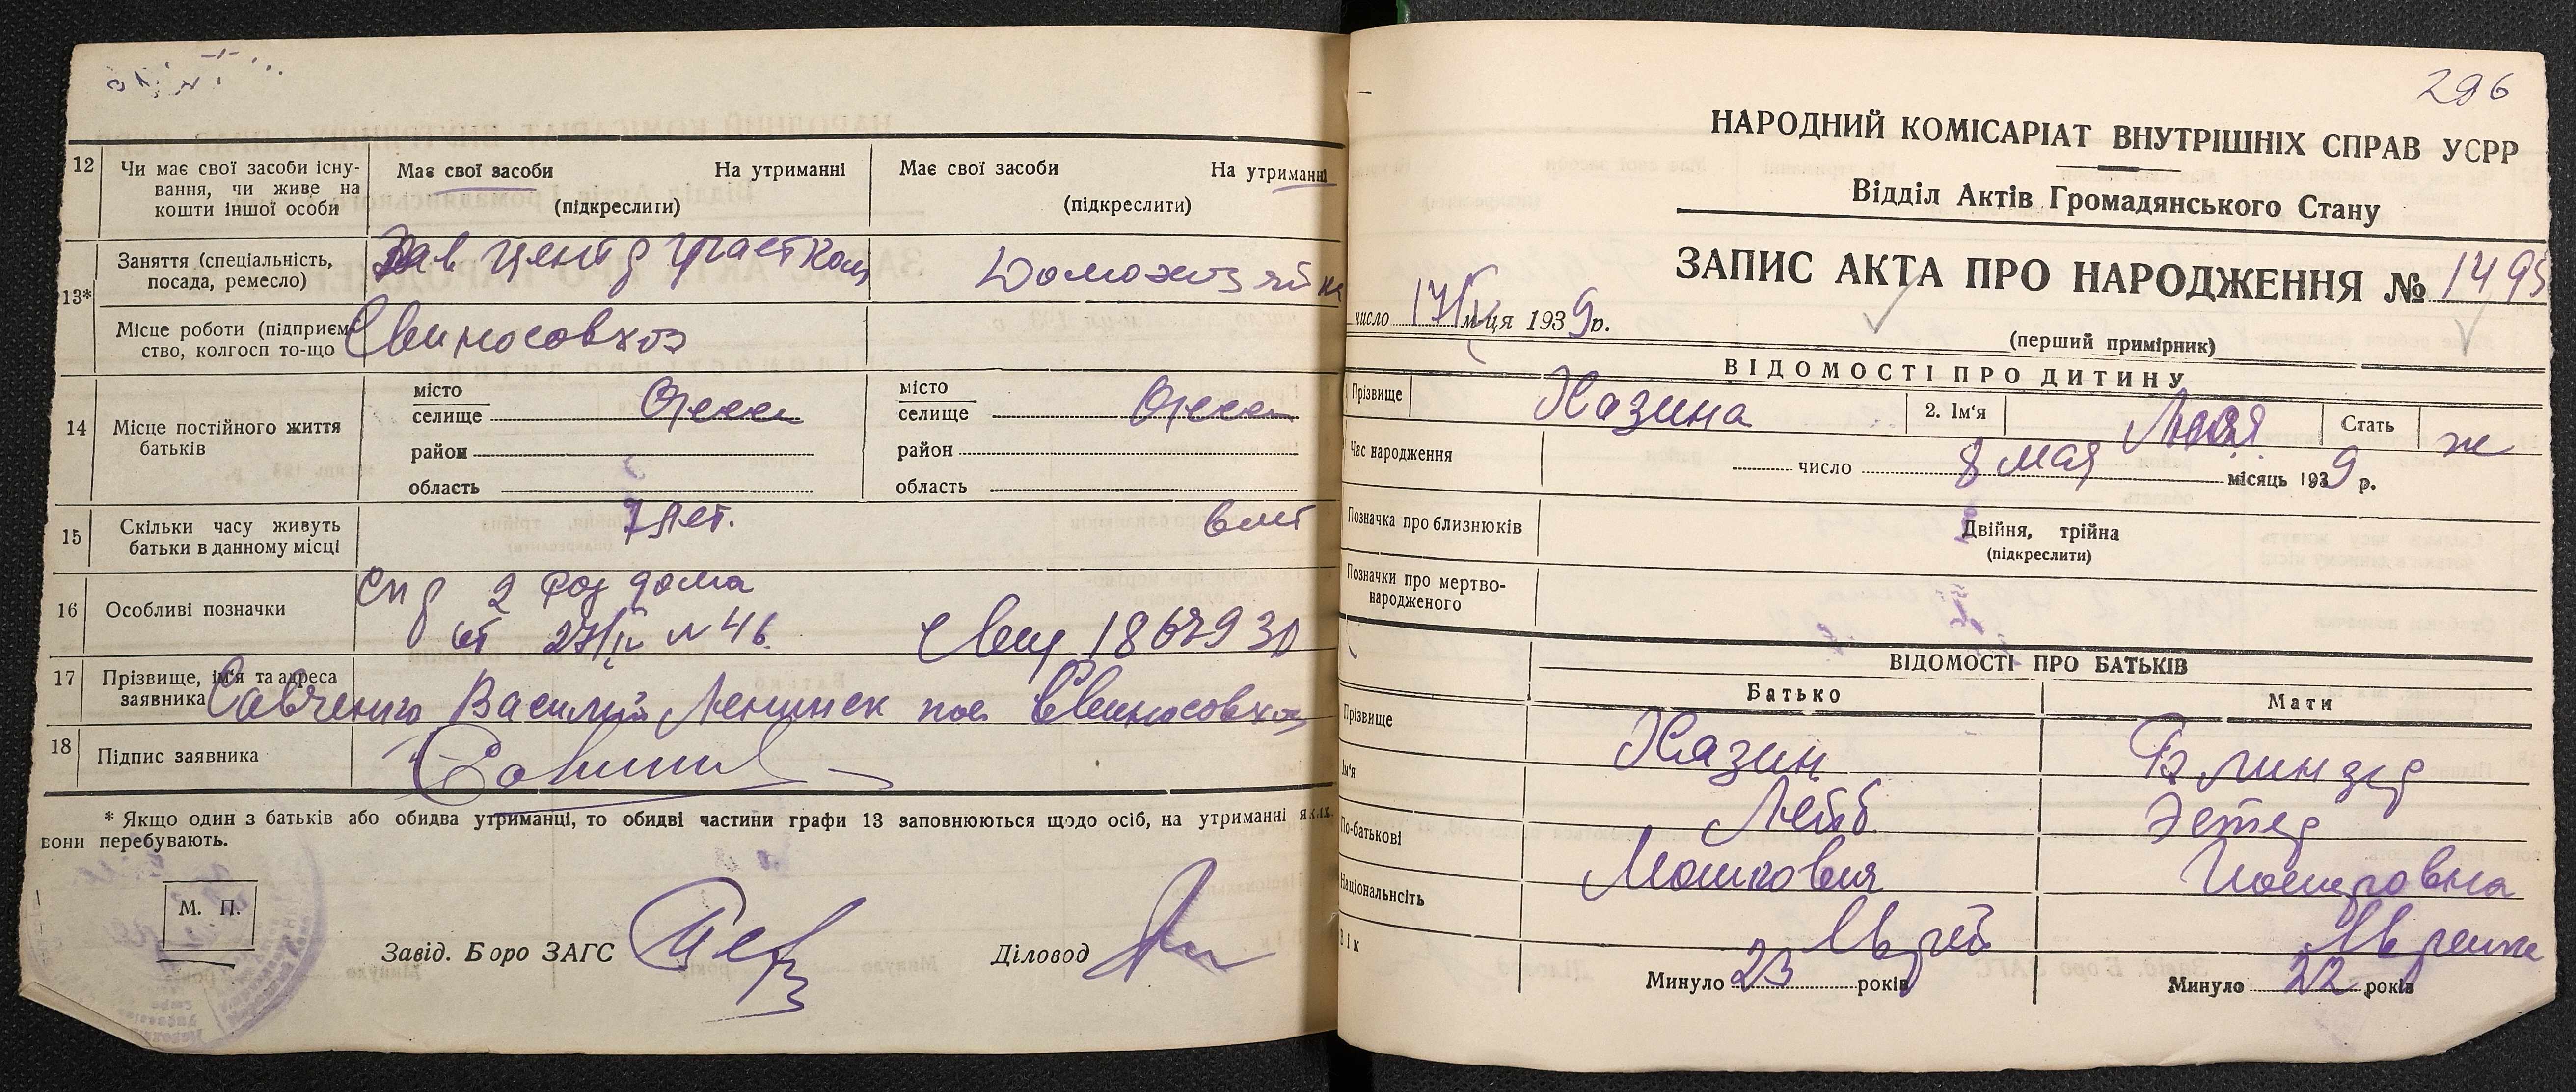 12 Чи має свої засоби існу-
вання, чи живе на
кошти іншої особи
Має свої засоби На утриманні
(підкреслити)
Має свої засоби На утриманні
(підкреслити)
13*
Заняття (спеціальність,
посада, ремесло)
Зав центр участком
Домохозяйк
Місце роботи (підприєм-
ство, колгосп то-що
Свиносовхоз
14 Місце постійного життя
батьків
місто
селище Одесса
район
область
місто
селище Одесса
район
область
15 Скільки часу живуть
батьки в данному місці
7 лет.
6 лет
16 Особливі позначки
Спр 2 Род дома
от 27/IV N 46 1867930
17 Прізвище, ім'я та адреса
заявника Савченко Василий Ленинск пос Свиносовхоз
18 Підпис заявника
* Якщо один з батьків або обидва утриманці, то обидві частини графи 13 заповнюються щодо осіб, на утриманні яких
вони перебувають.
М. П.
Завід. Боро ЗАГС
Діловод
296
НАРОДНИЙ КОМІСАРІАТ ВНУТРІШНІХ СПРАВ УСРР
Відділ Актів Громадянського Стану
ЗАПИС АКТА ПРО НАРОДЖЕННЯ № 1495
число 17/V м-ця 1939 р.
(перший примірник)
ВІДОМОСТІ ПРО ДИТИНУ
Прізвище Хазина 2. Ім'я Стать ж
Час народження число 8 мая місяць 1939 р.
Позначка про близнюків
Двійня, трійна
(підкреслити)
Позначки про мертво-
народженого
ВІДОМОСТІ ПРО БАТЬКІВ
Батько Мати
Прізвище Хазин Блиндер
Ім'я Лейб Эстер
По-батькові Мошкович
Національність Еврей Еврейка
Вік Минуло 23 років Минуло 22 років